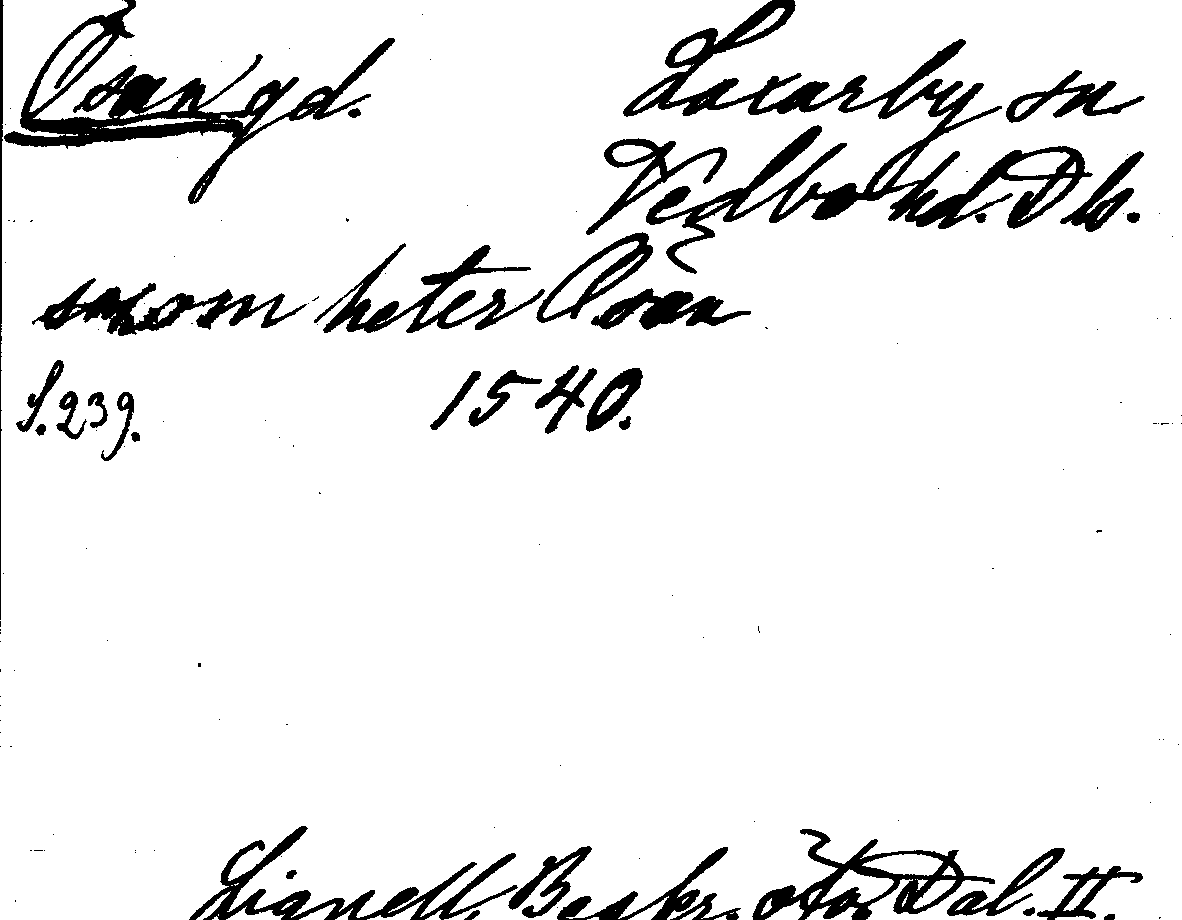 Ösan gd. Laxarby sn
Vedbo hd. Dls.
heter Ösan
S. 239. 1540.
Lignell, Beskr. Dal. II.